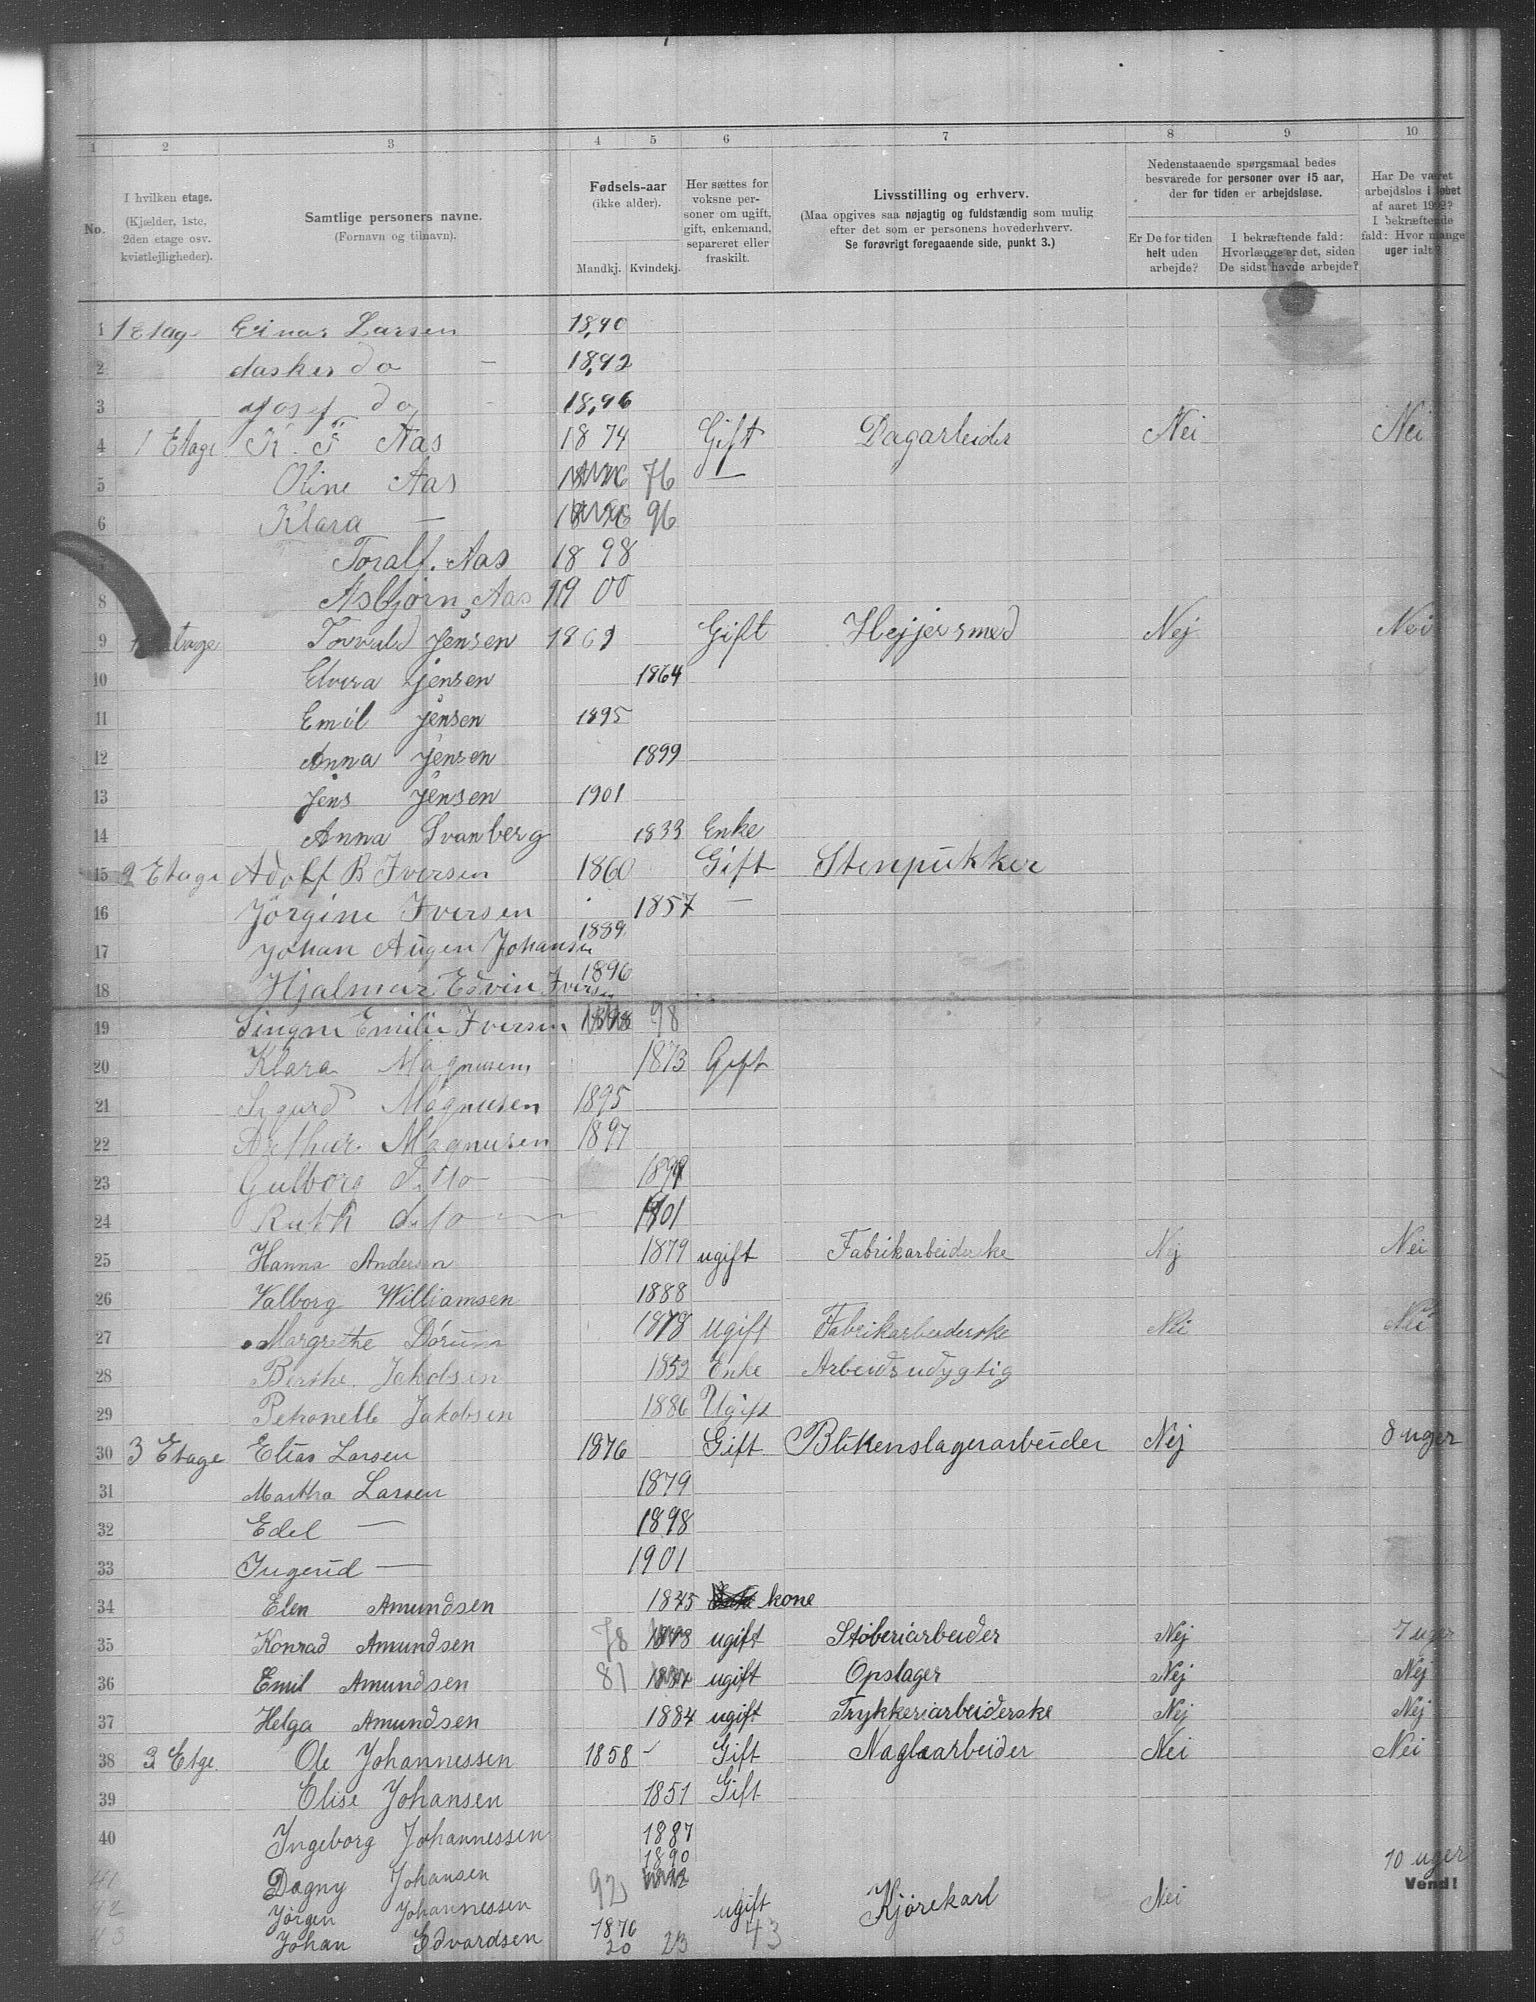 1 2 3 4 5 6 7 8 9 10
No.
I hvilken etage.
(Kjælder, 1ste,
2den etage osv.
kvistlejligheder).
Samtlige personers navne.
(Fornavn og tilnavn).
Fødsels-aar
(ikke alder).
Mandkj. Kvindekj.
Her sættes for
voksne per-
soner om ugift,
gift, enkemand,
separeret eller
fraskilt.
Livsstilling og erhverv.
(Maa opgives saa nøjagtig og fuldstændig som mulig
efter det som er personens hovederhverv.
Se forøvrigt foregaaende side, punkt 3.)
Nedenstaaende spørgsmaal bedes
besvarede for personer over 15 aar,
der for tiden er arbejdsløse.
Er De for tiden
helt uden
arbejde?
I bekræftende fald:
Hvorlænge er det, siden
De sidst havde arbejde?
Har De været
arbejdsløs i løbet
af aaret 1902?
I bekræftende
fald: Hvor mange
uger ialt?
1 1 Etag Einar Larsen 1890
2 do 1892
3 Josef do 1896
4 1 Etage K. F. Aas 1874 Gift Dagarbeider Nei Nei
5 Oline Aas 76 —
6 Klara — 96
7 Toralf. Aas 1898
8 Asbjørn Aas 1900
9 1 Etage Torvald Jensen 1861 Gift Hejjersmed Nej Nei
10 Elvira Jensen 1864
11 Emil Jensen 1895
12 Anna Jensen 1899
13 Jens Jensen 1901
14 Anna Svanberg 1833 Enke
15 2 Etage Adolf B Iversen 1860 Gift Stenpukker
16 Jörgine Iversen 1857 —
17 Johan Augen Johansen 1889
18 Hjalmar Edvin Iversen 1896
19 Singne Emilie Iversen 98
20 Klara Magnusen 1873 Gift
21 Sigurd Magnusen 1895
22 Arthur Magnusen 1897
23 Gulborg Dito —
24 Ruth dito — 1901
25 Hanna Andersen 1879 ugift Fabrikarbeiderske Nej Nei
26 Valborg Williamsen 1888
27 Margrethe Dörum 1878 ugift Fabrikarbeiderske Nei Nei
28 Berthe Jakobsen 1852 Enke Arbeidsudygtig
29 Petronelle Jakobsen 1886 Ugift
30 3 Etage Elias Larsen 1876 Gift Blikenslagerarbeider Nej 8 uger
31 Martha Larsen 1879
32 Edel — 1898
33 Ingerid — 1901
34 Elen Amundsen 1845 kone
35 Konrad Amundsen 78 ugift Støberiarbeider Nej 7 uger
36 Emil Amundsen 81 ugift Opslager Nej Nej
37 Helga Amundsen 1884 ugift Trykkeriarbeiderske Nej Nej
38 3 Etge Ole Johannessen 1858 - Gift Naglearbeider Nei Nei
39 Elise Johansen 1851 Gift
40 Ingeborg Johannessen 1887
41 Dagny Johansen 1890
42 Jørgen Johannessen 92
43 Johan Edvardsen 1876 ugift Kjörekarl Nei 10 uger
Vend!
20 23 43